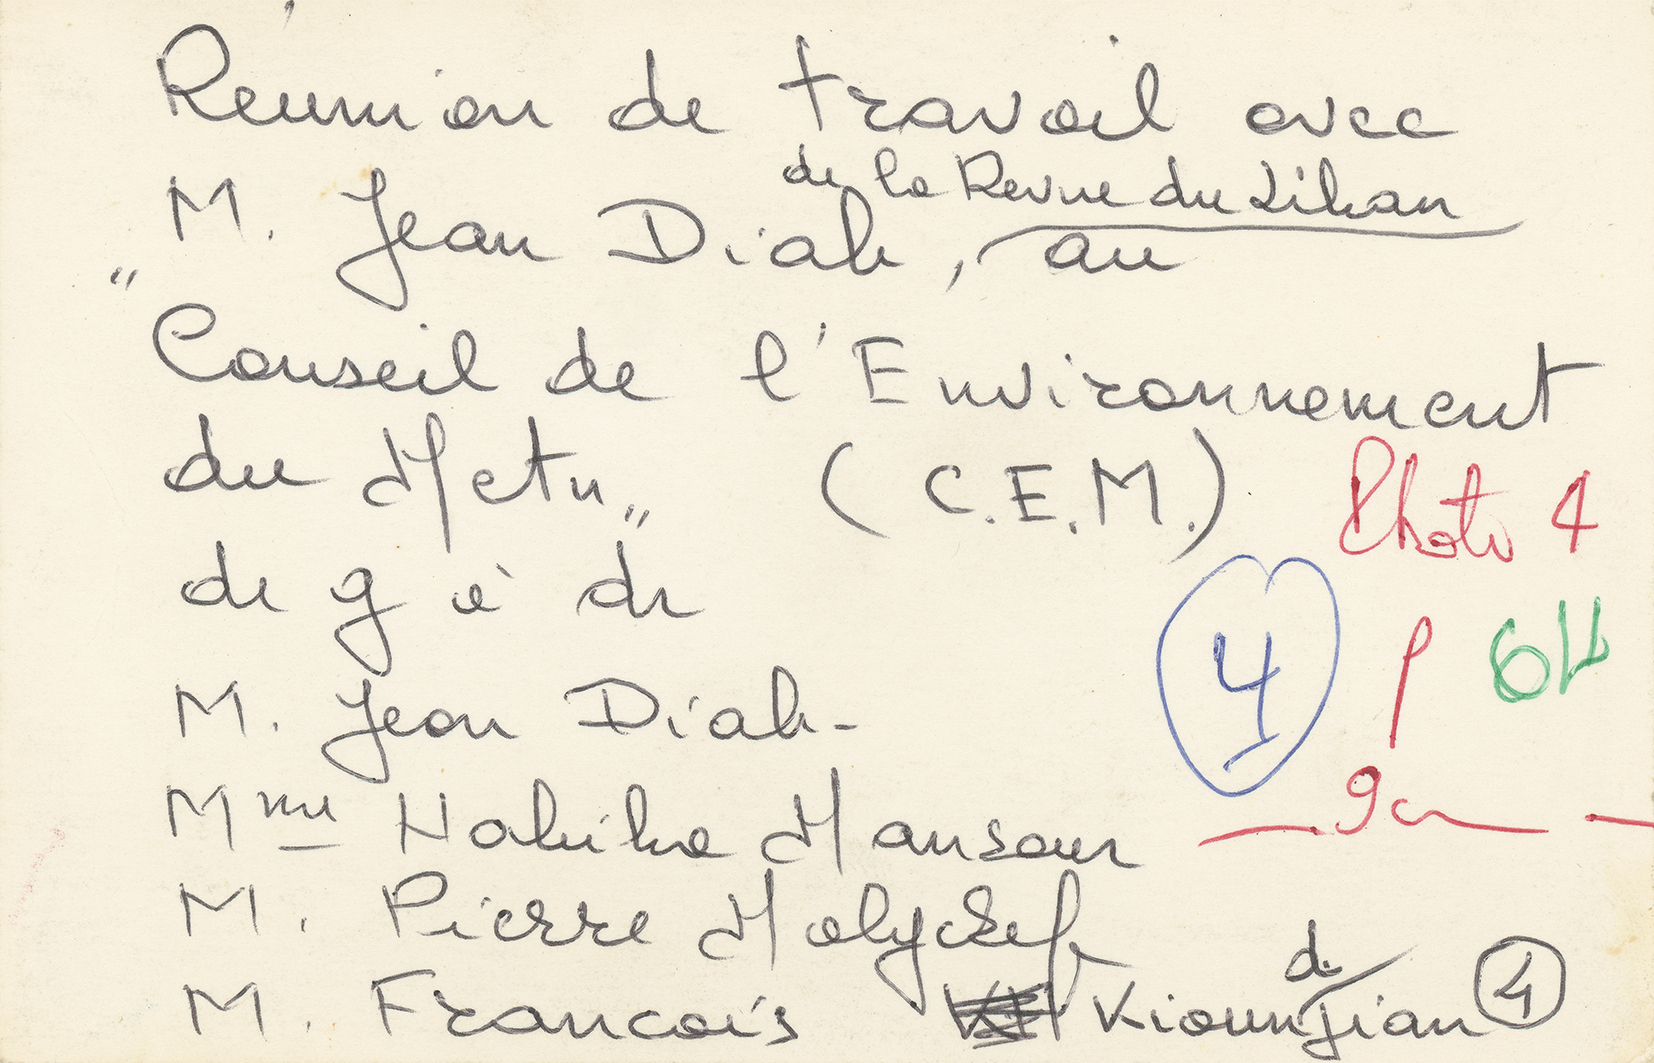 Réunion de travail avec
de la Revue du Liban
M. Jean Diab, au
"Conseil de l'Environnement
du Metn" (C.E.M.)
Photo 4
de g à dr
4
M. Jean Diab-
9cm
Mme Habiba Mansour
M. Pierre
M. Francois Kioundjian 4